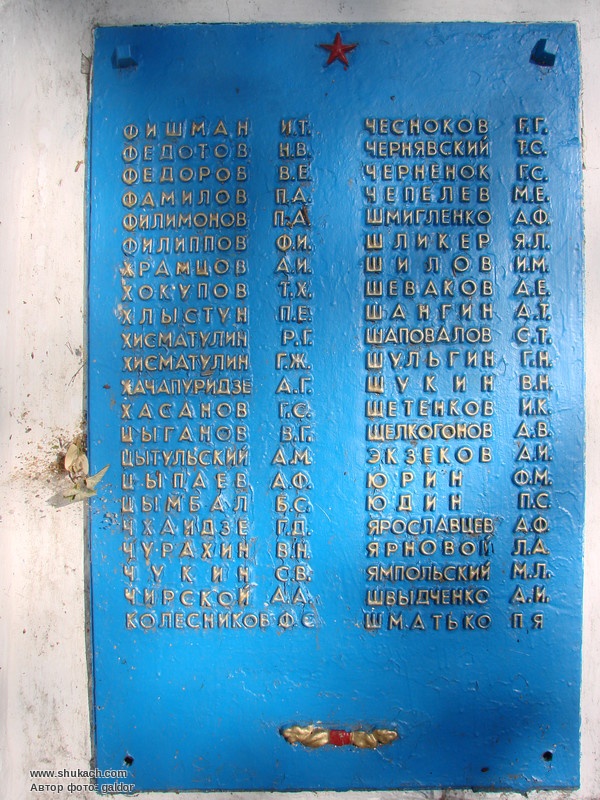 ФИШМАН И.Т.
ФЕДОТОВ Н.В.
ФЕДОРОВ В.Е.
ФАМИЛОВ П.А.
ФИЛИМОНОВ П.А.
ФИЛИППОВ Ф.И.
ХРАМЦОВ А.И.
ХОКУПОВ Т.Х.
ХЛЫСТУН П.Е.
ХИСМАТУЛИН Р.Г.
ХИСМАТУЛИН Г.Ж.
ХАЧАПУРИДЗЕ А.Г.
ХАСАНОВ Г.С.
ЦЫГАНОВ В.Г.
ЦЫТУЛЬСКИЙ А.М.
ЦЫПАЕВ А.Ф.
ЦЫМБАЛ Б.С.
ЧХАИДЗЕ Г.Д.
ЧУРАХИН В.Н.
ЧУКИН С.В.
ЧИРСКОЙ А.А.
КОЛЕСНИКОВ Ф.С
ЧЕСНОКОВ Г.Г.
ЧЕРНЯВСКИЙ Т.С.
ЧЕРНЕНОК Г.С.
ЧЕПЕЛЕВ М.Е.
ШМИГЛЕНКО А.Ф.
ШЛИКЕР Я.Л.
ШИЛОВ И.М.
ШЕВАКОВ А.Е.
ШАНГИН А.Т.
ШАПОВАЛОВ С.Т.
ШУЛЬГИН Г.Н.
ЩУКИН В.Н.
ЩЕТЕНКОВ И.К.
ЩЕЛКОГОНОВ А.В.
ЭКЗЕКОВ А.И.
ЮРИН Ф.М.
ЮДИН П.С.
ЯРОСЛАВЦЕВ А.Ф.
ЯРНОВОЙ Л.А.
ЯМПОЛЬСКИЙ М.Л.
ШВЫДЧЕНКО А.И.
ШМАТЬКО П Я
www.shukach.com
Автор фото: galdor